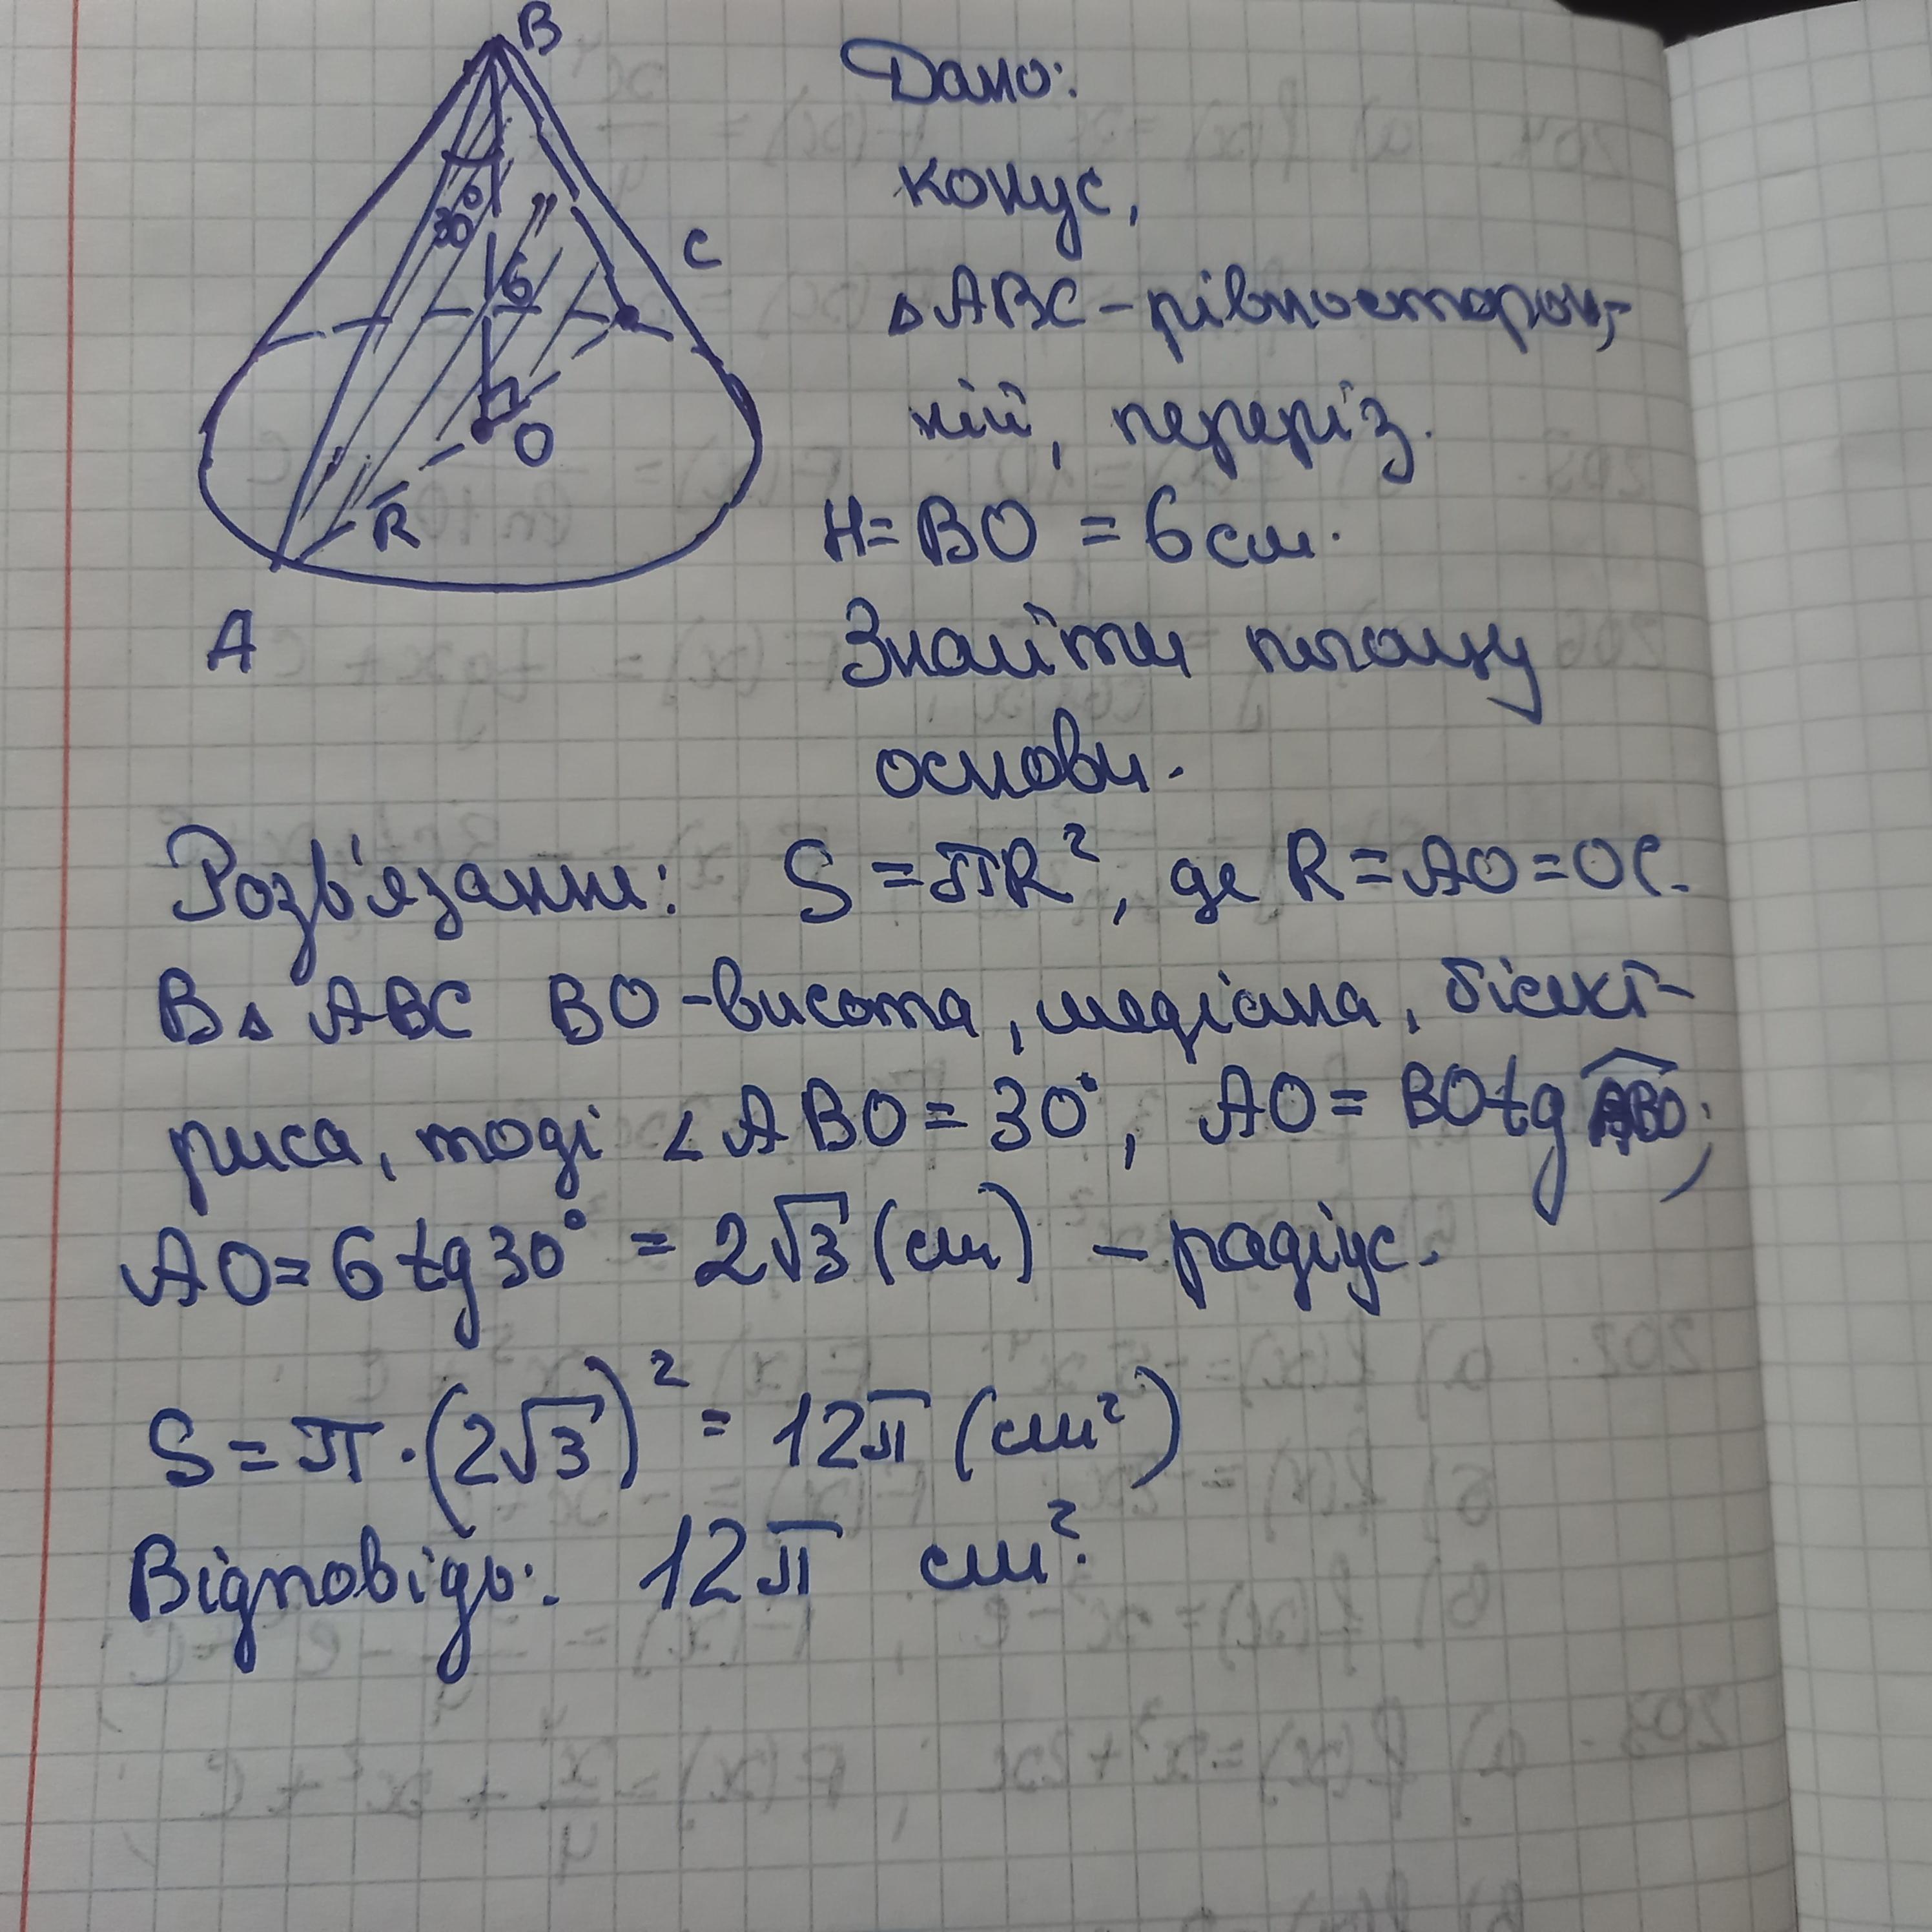 B
30°
6
C
O
R
A
Дано:
конус,
△ABC - рівносторон-
ній, переріз.
H = BO = 6 см.
Знайти площу
основи.
Розв'язання: S = πR², де R = AO = OC.
В △ ABC BO - висота, медіана, бісект-
риса, тоді ∠ABO = 30°, AO = BO tg ABO;
AO = 6 tg 30° = 2√3 (см) - радіус.
S = π · (2√3)² = 12π (см²)
Відповідь: 12π см².